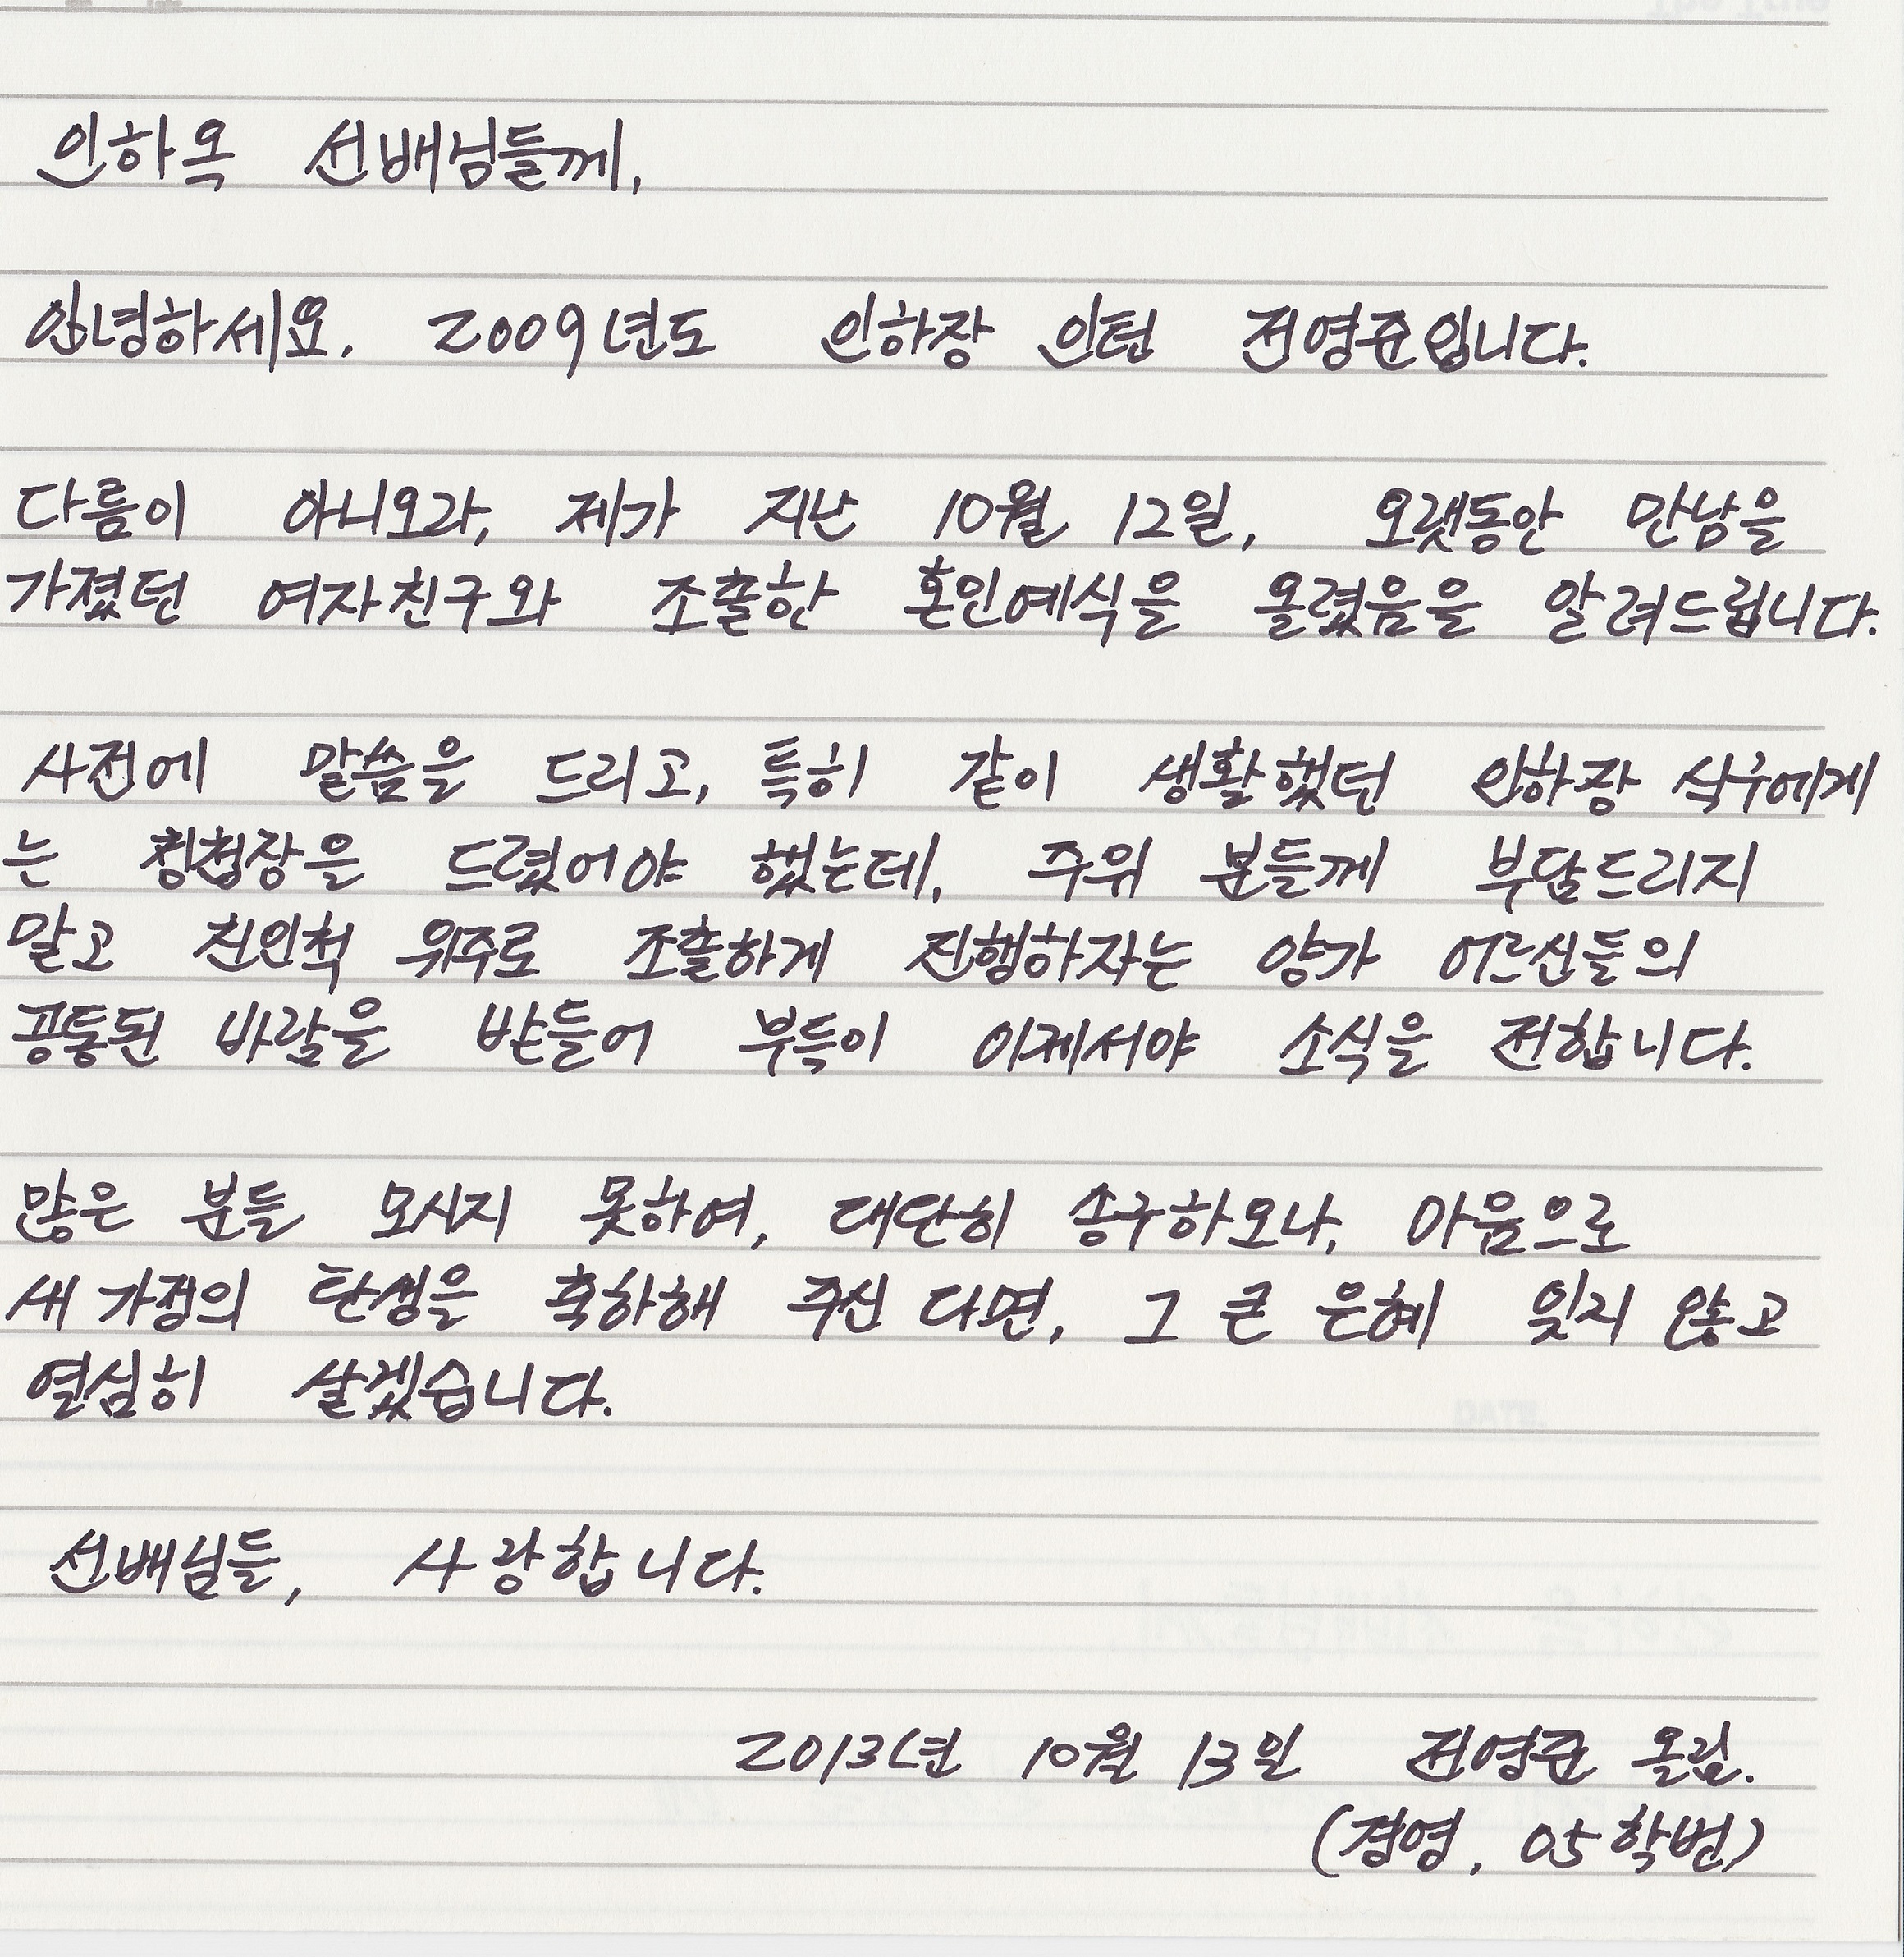 인하옥 선배님들께,
안녕하세요. 2009년도 인하장 인턴 전영준입니다.
다름이 아니오라, 제가 지난 10월 12일, 오랫동안 만남을
가졌던 여자친구와 조촐한 혼인예식을 올렸음을 알려드립니다.
사전에 말씀을 드리고, 특히 같이 생활했던 인하장 식구에게
는 청첩장을 드렸어야 했는데, 주위 분들께 부담드리지
말고 친인척 위주로 조촐하게 진행하자는 양가 어르신들의
공통된 바람을 받들어 부득이 이제서야 소식을 전합니다.
많은 분들 모시지 못하여, 대단히 송구하오나, 마음으로
새 가정의 탄생을 축하해 주신다면, 그 큰 은혜 잊지 않고
열심히 살겠습니다.
선배님들, 사랑합니다.
2013년 10월 13일 전영준 올림.
(경영, 05학번)